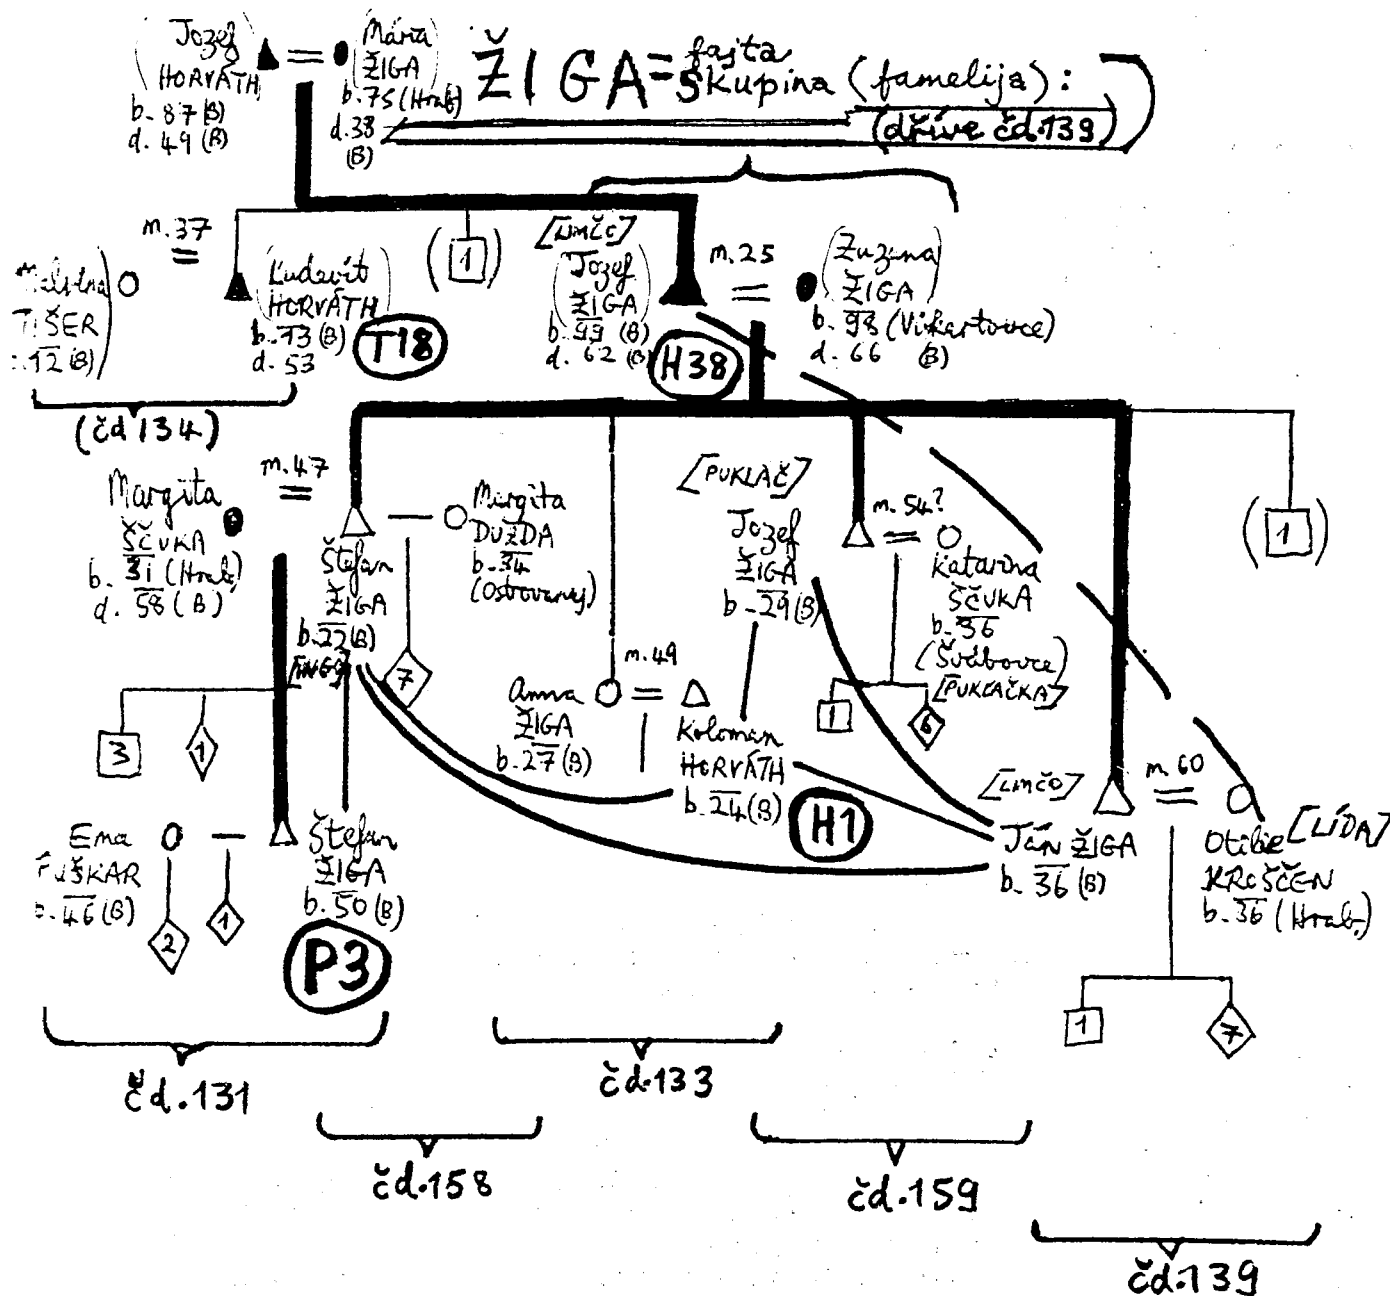 Jozef
HORVÁTH
b. 87 (B)
d. 49 (B)
Mária
ŽIGA
b. 75 (Hrab)
d. 38
(B)
ŽIGA = fajta
skupina (famelija):
(dříve čd. 139)
m. 37
TIŠER
12 (B)
Ľudevít
HORVÁTH
b. 13 (B)
d. 53
T18
(čd 134)
(1)
Jozef
ŽIGA
b. 99 (B)
d. 62 (B)
H38
m. 25
Zuzana
ŽIGA
b. 98 (Vikartovce)
d. 66 (B)
Margita
ŠČUKA
b. 31 (Hrab.)
d. 58 (B)
m. 47
Štefan
ŽIGA
b. 22 (B)
Margita
DUŽDA
b. 34
7
[PUKLAČ]
Jozef
ŽIGA
b. 29 (B)
m. 54?
Katarína
ŠČUKA
b. 36
(Švábovce)
[PUKLAČKA]
1
6
(1)
3
1
Anna
ŽIGA
b. 27 (B)
m. 49
Koloman
HORVÁTH
b. 24 (B)
H1
[LINČO]
Ján ŽIGA
b. 36 (B)
m. 60
Otilie [LÍDA]
KROŠČEN
b. 36 (Hrab.)
1
7
Ema
46 (B)
2
1
Štefan
ŽIGA
b. 50 (B)
P3
čd. 131
čd. 133
čd. 158
čd. 159
čd. 139